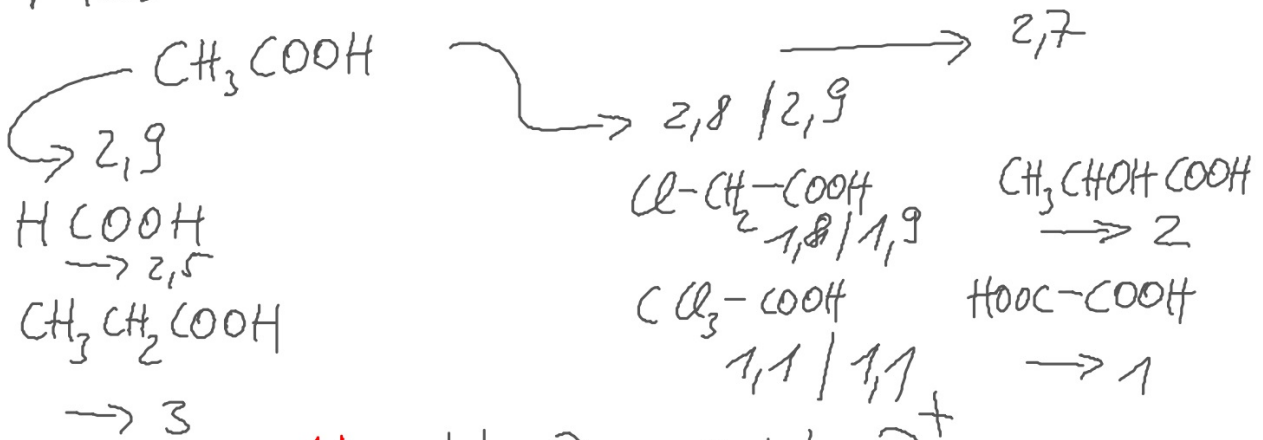 CH₃COOH
2,9
HCOOH
→ 2,5
CH₃CH₂COOH
→ 3
2,8 / 2,9
Cl-CH₂-COOH
1,8 / 1,9
CCl₃-COOH
1,1 / 1,1
→ 2,7
CH₃CHOHCOOH
→ 2
HOOC-COOH
→ 1